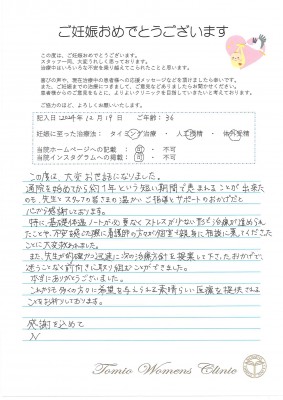 ご妊娠おめでとうございます
この度は、ご妊娠おめでとうございます。
スタッフ一同、大変うれしく思っております。
治療中はいろいろな不安を乗り越えてこられたことと思います。
喜びの声や、現在治療中の患者様への応援メッセージなどを頂けましたら幸いです。
また、ご妊娠までの治療につきまして、ご意見などありましたらお聞かせください。
患者様からのご意見をもとに、より良いクリニックを目指していきたいと考えております。
ご協力のほど、よろしくお願いいたします。
記入日 2024年 12月 19日 ご年齢: 36
妊娠に至った治療法: タイミング治療 ・ 人工授精 ・ 体外受精
当院ホームページへの掲載: 可 ・ 不可
当院インスタグラムへの掲載: 可 ・ 不可
この度は、大変お世話になりました。
通院を始めてから約1年という短い期間で恵まれることが出来た
のも、先生とスタッフの皆さまの温かいご指導とサポートのおかげだと
心から感謝しております。
特に、基礎体温ノートが必要なくストレスが少ない形で治療が進められ
たことや、不安を感じた際に看護師の方々が個室で親身に相談に乗してくださった
ことに大変救われました。
また、先生が的確かつ迅速に次の治療方針を提案して下さったおかげで、
迷うことなく前向きに取り組むことができました。
本当にありがとうございました。
これからも多くの方々に希望を与えられる素晴らしい医療を提供される
ことをお祈りしております。
感謝を込めて
N
Tomio Womens Clinic